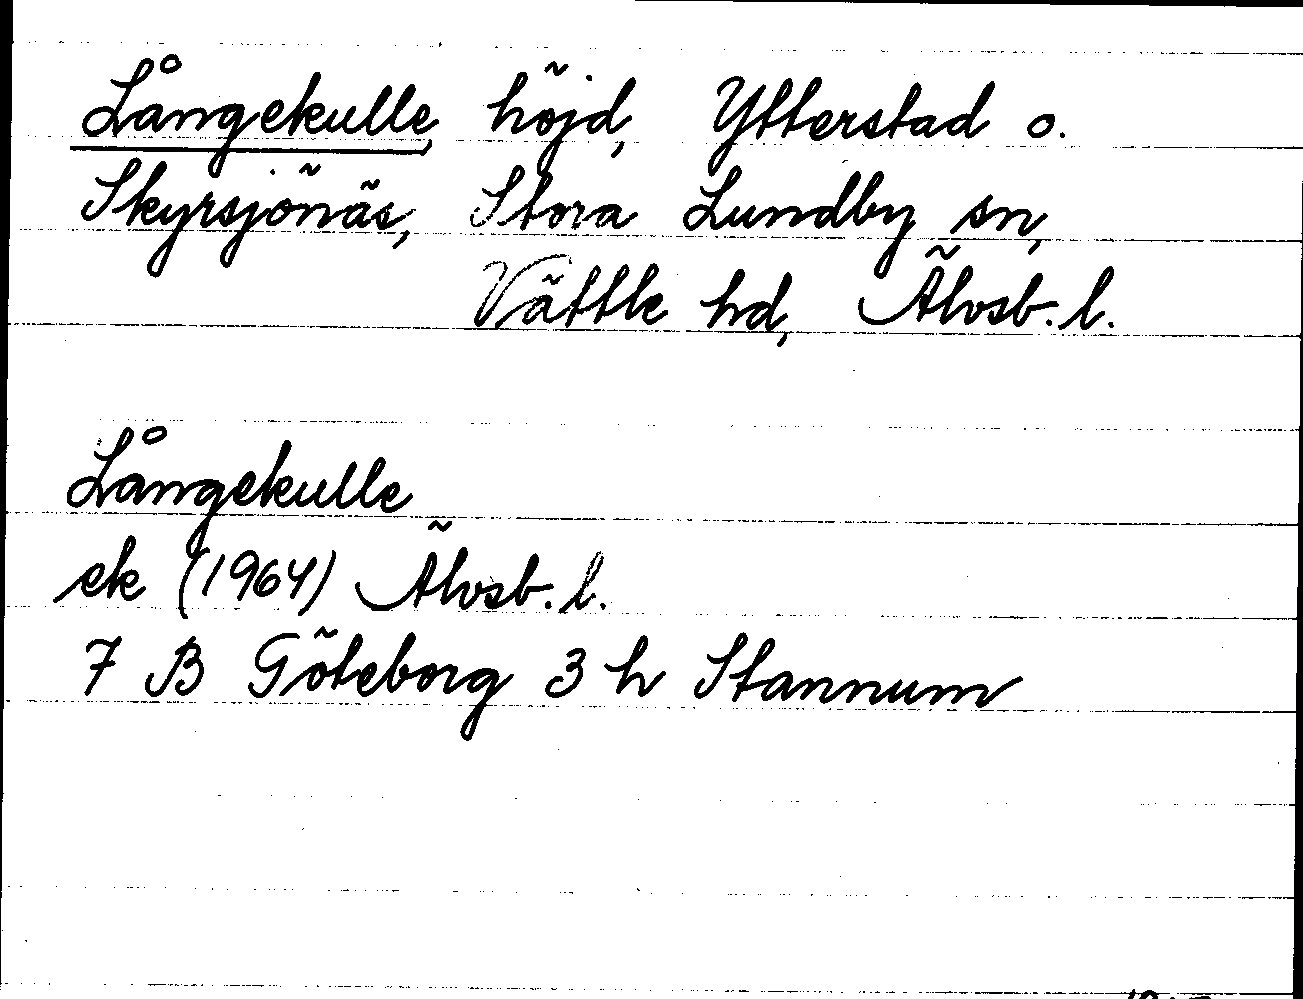 Långekulle, höjd, Ytterstad o.
Skyrsjönäs, Stora Lundby sn,
Vättle hd, Älvsb. l.
Långekulle
ek (1964) Älvsb. l.
7 B Göteborg 3 h Stannum